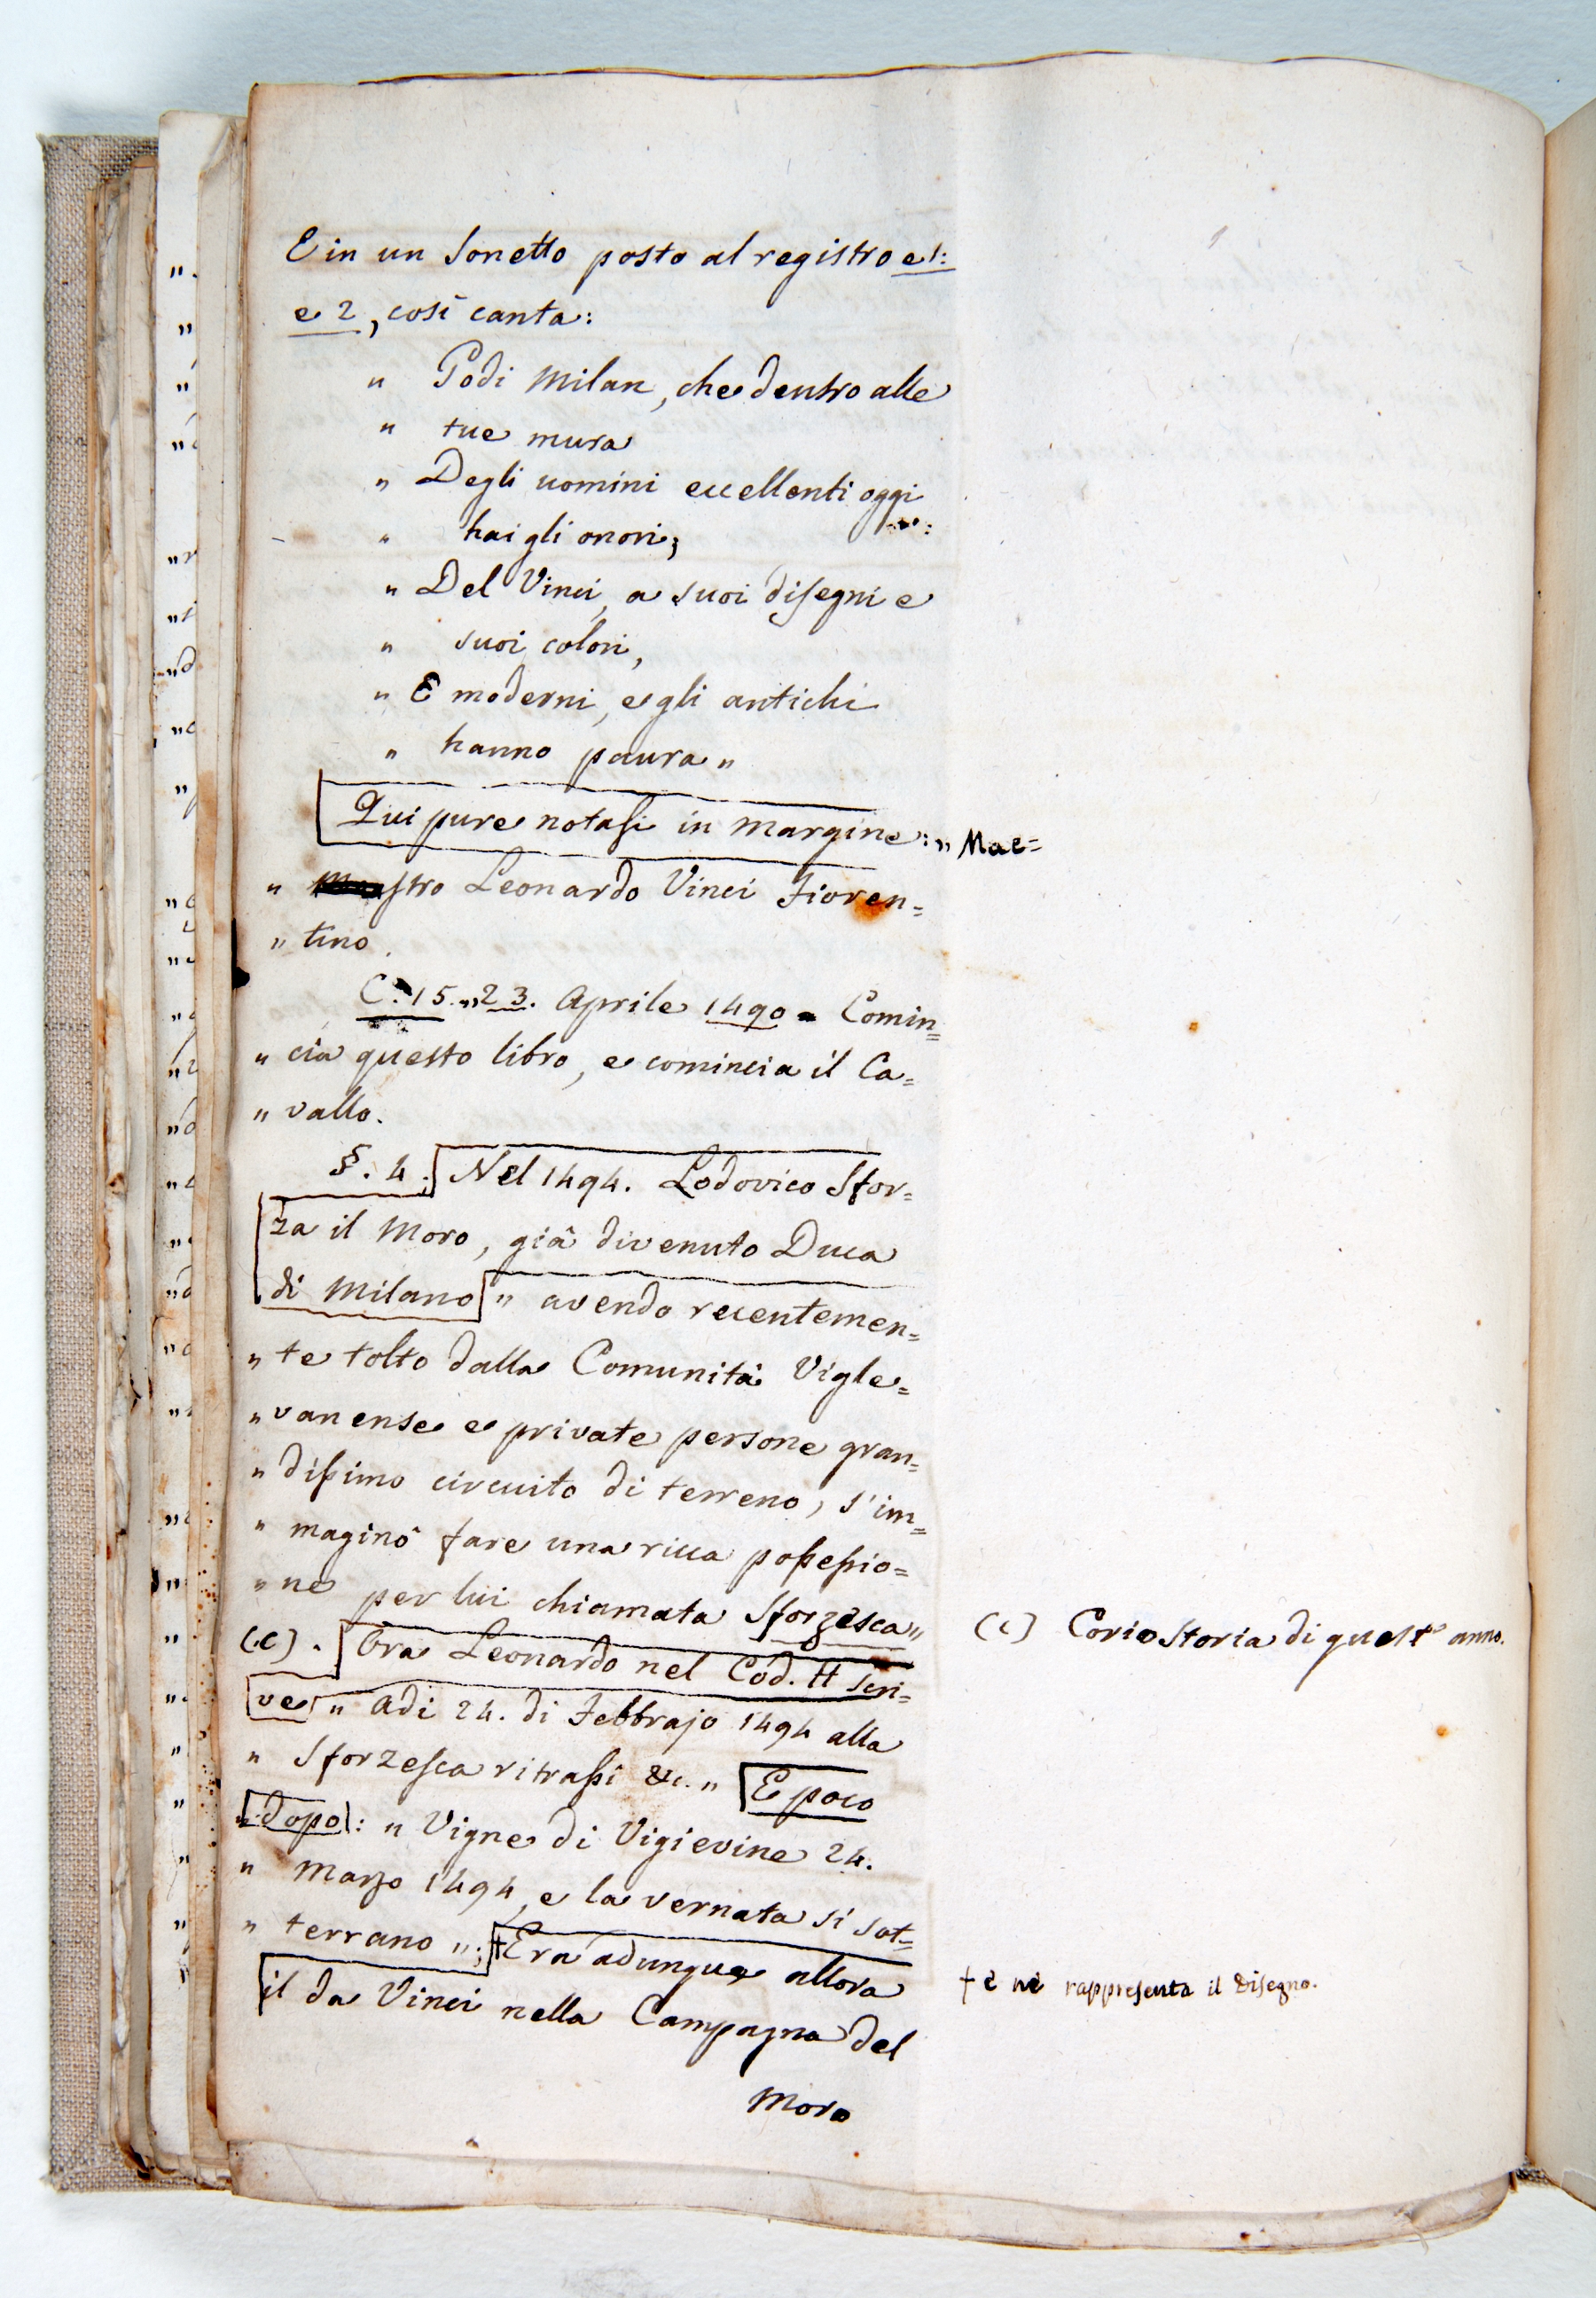 E in un Sonetto posto al registro e 1:
e 2, così canta:
" Godi Milan, che dentro alle
" tue mura
" Degli uomini eccellenti oggi
" hai gli onori;
" Del Vinci, a suoi disegni e
" suoi colori,
" E moderni, e gli antichi
" hanno paura "
Qui pure notasi in margine: " Mae=
" stro Leonardo Vinci Fioren=
" tino.
C. 15. " 23. Aprile 1490 = Comin=
" cia questo libro, e comincia il Ca=
" vallo.
§. 4. Nel 1494. Lodovico Sfor=
za il Moro, già divenuto Duca
di Milano " avendo recentemen=
" te tolto dalla Comunità Vigle=
" vanense e private persone gran=
" dissimo circuito di terreno, s'im=
" maginò fare una ricca possessio=
" ne per lui chiamata Sforzesca "
(c). Ora Leonardo nel Cod. H scri=
ve " adi 24. di Febbrajo 1494 alla
" Sforzesca ritrassi &c. " E poco
" dopo: " Vigne di Vigievine 24.
" Marzo 1494, e la vernata si sot=
" terrano "; † Era adunque allora
il da Vinci nella Campagna del
Moro
(c) Corio Storia di quest° anno.
† e ne rappresenta il disegno.